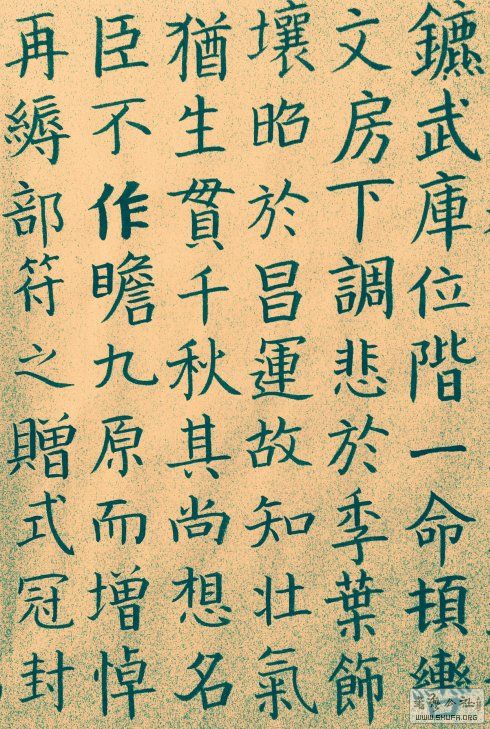 鑣武庫位階一命頓轡
文房下調悲於季葉飾
壤昭於昌運故知壯氣
猶生貫千秋其尚想名
臣不作瞻九原而增悼
再縟部符之贈式冠封
WWW.SHUFA.ORG